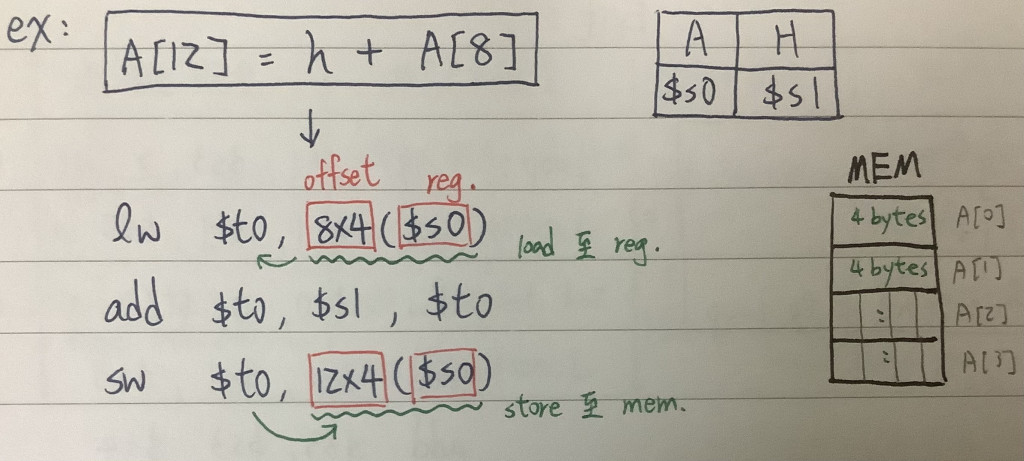 ex: A[12] = h + A[8]
A H
$s0 $s1
offset reg.
MEM
lw $t0, 8x4($s0) load 至 reg.
4 bytes A[0]
4 bytes A[1]
add $t0, $s1, $t0
: A[2]
: A[3]
sw $t0, 12x4($s0) store 至 mem.